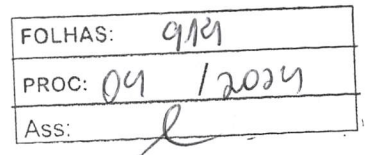 FOLHAS: 914
PROC: 04 / 2024
Ass: